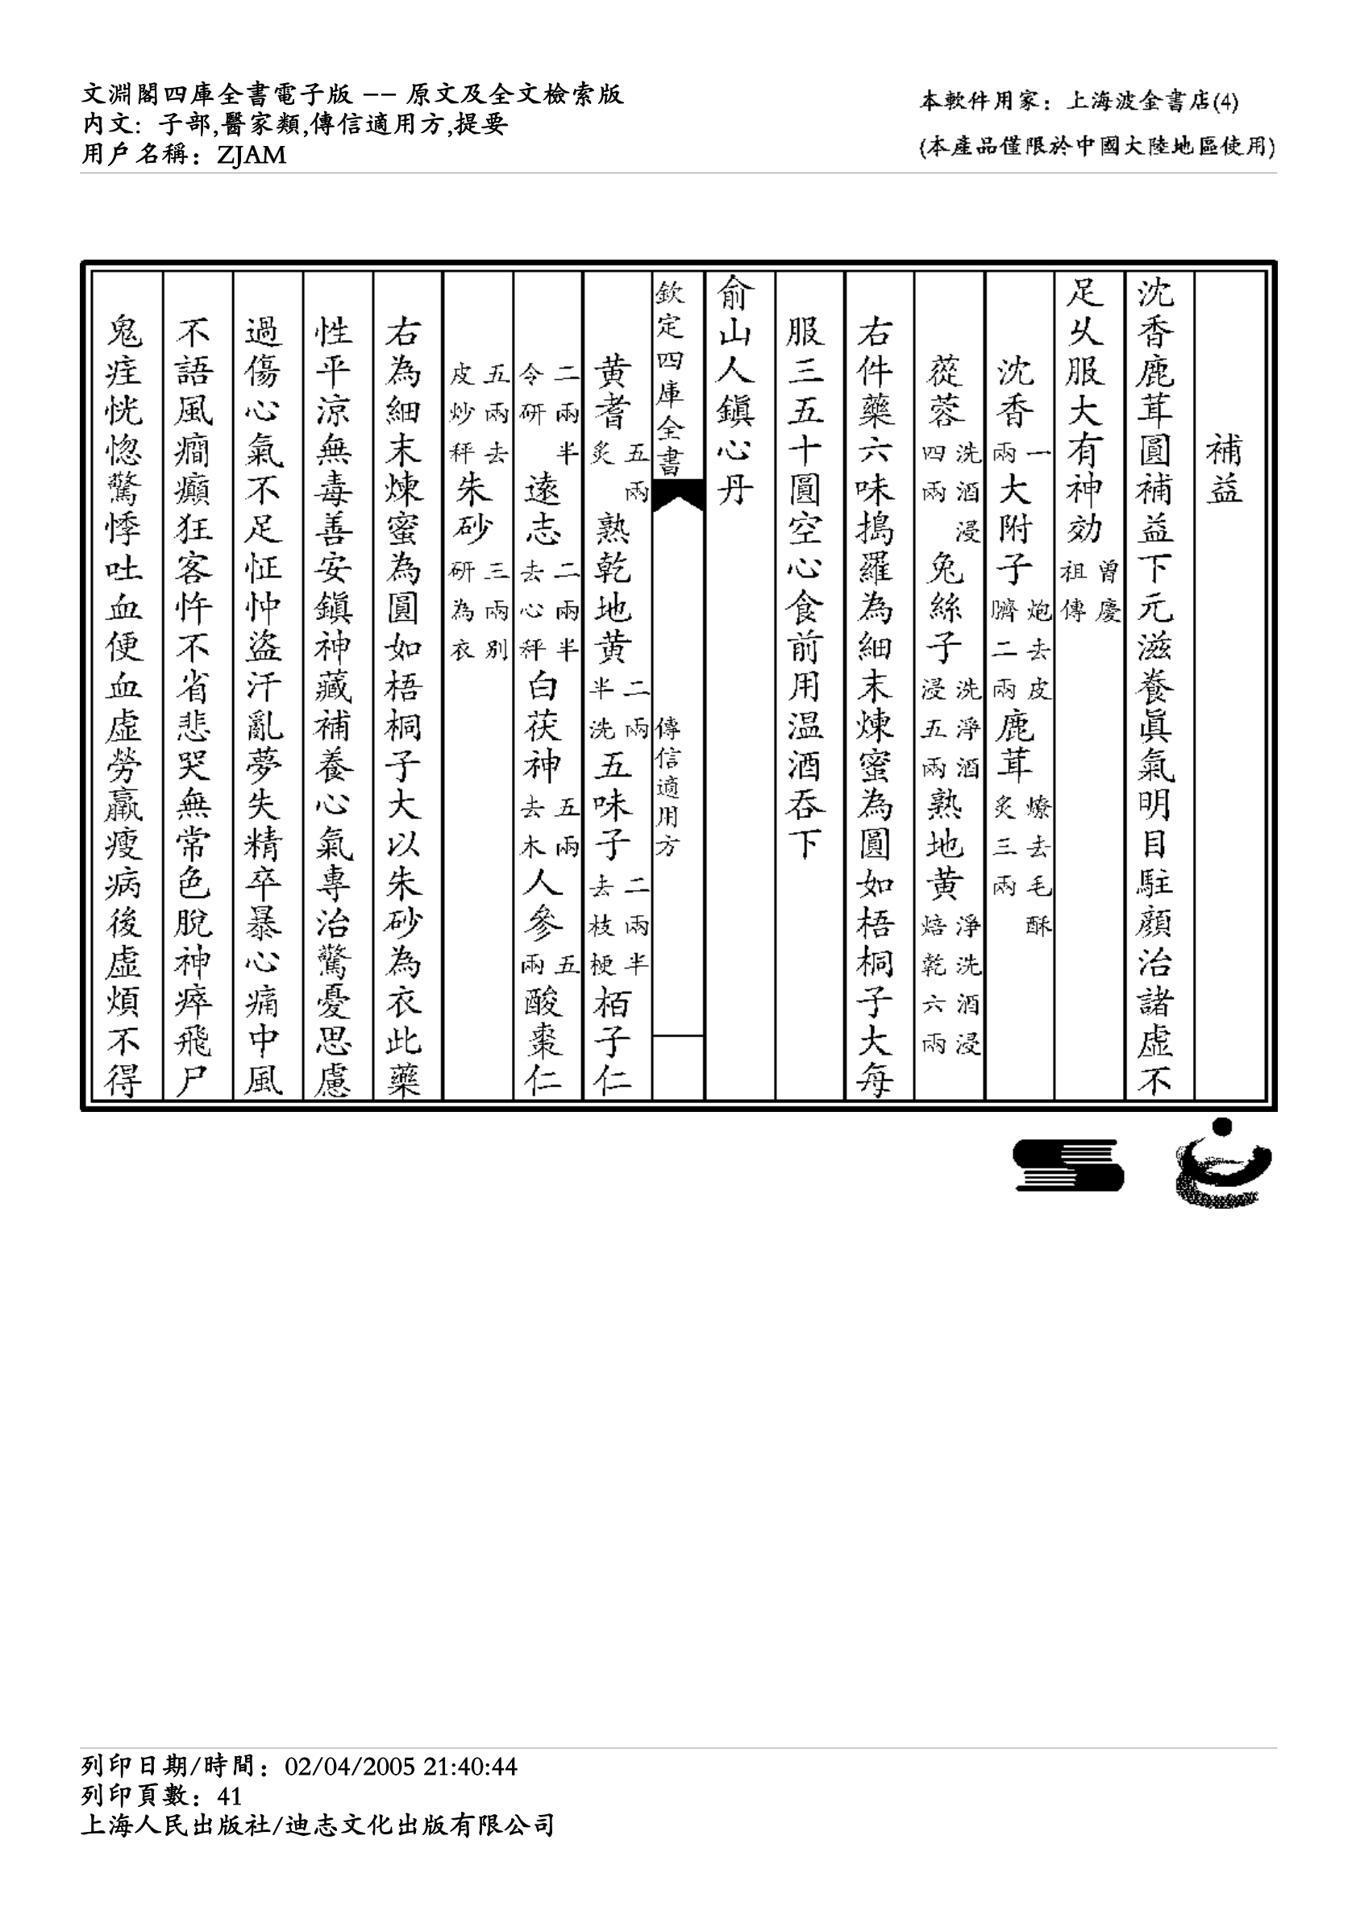 文淵閣四庫全書電子版 -- 原文及全文檢索版
内文: 子部,醫家類,傳信適用方,提要
用戶名稱: ZJAM
本軟件用家: 上海波金書店(4)
(本產品僅限於中國大陸地區使用)
補益
沈香鹿茸圓補益下元滋養眞氣明目駐顔治諸虚不
足乆服大有神効曾慶祖傳
沈香一兩大附子炮去皮臍二兩鹿茸燎去毛酥炙三兩
蓯蓉洗酒浸四兩兔絲子洗淨酒浸五兩熟地黄淨洗酒浸焙乾六兩
右件藥六味搗羅為細末煉蜜為圓如梧桐子大每
服三五十圓空心食前用温酒吞下
俞山人鎭心丹
欽定四庫全書
傳信適用方
黄耆五兩炙熟乾地黄二兩半洗五味子二兩半去枝梗栢子仁
二兩半令研遠志二兩半去心秤白茯神五兩去木人參五兩酸棗仁
五兩去皮炒秤朱砂三兩别研為衣
右為細末煉蜜為圓如梧桐子大以朱砂為衣此藥
性平涼無毒善安鎭神藏補養心氣專治驚憂思慮
過傷心氣不足怔忡盜汗亂夢失精卒暴心痛中風
不語風癎癲狂客忤不省悲哭無常色脫神瘁飛尸
鬼疰恍惚驚悸吐血便血虚勞羸瘦病後虚煩不得
列印日期/時間: 02/04/2005 21:40:44
列印頁數: 41
上海人民出版社/迪志文化出版有限公司